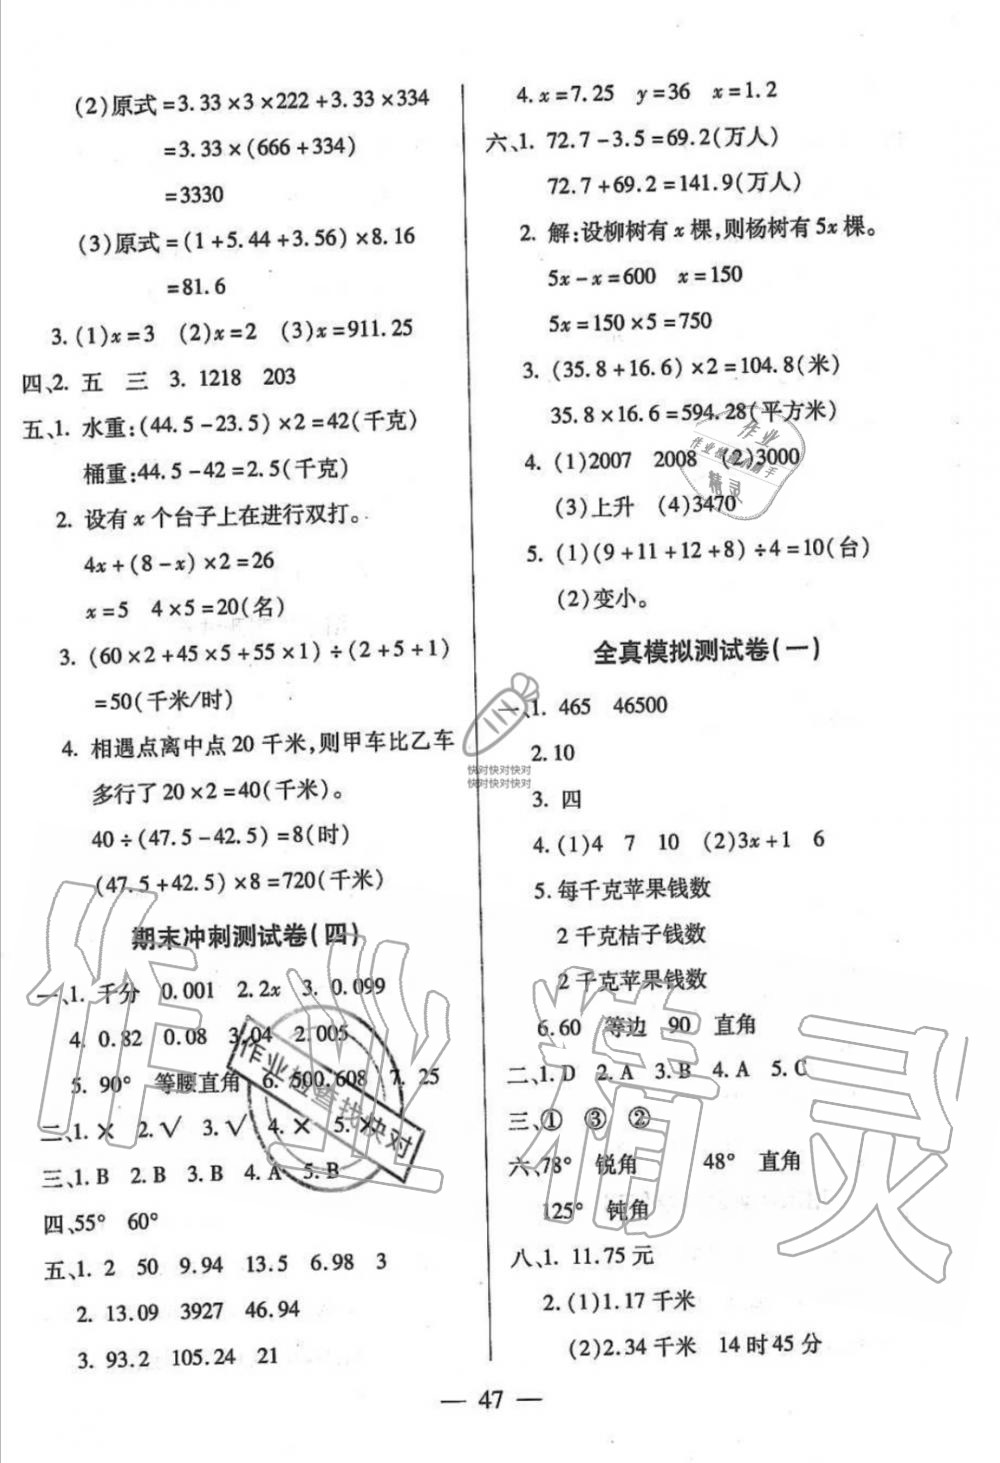 (2)原式=3.33×3×222+3.33×334
=3.33×(666+334)
=3330
(3)原式=(1+5.44+3.56)×8.16
=81.6
3.(1)x=3 (2)x=2 (3)x=911.25
四、2. 五 三 3. 1218 203
五、1. 水重:(44.5-23.5)×2=42(千克)
桶重:44.5-42=2.5(千克)
2. 设有 x 个台子上在进行双打。
4x+(8-x)×2=26
x=5 4×5=20(名)
3. (60×2+45×5+55×1)÷(2+5+1)
=50(千米/时)
4. 相遇点离中点 20 千米,则甲车比乙车
多行了 20×2=40(千米)。
40÷(47.5-42.5)=8(时)
(47.5+42.5)×8=720(千米)
期末冲刺测试卷(四)
一、1. 千分 0.001 2.2x 3. 0.099
4. 0.82 0.08 3.04 2.005
5. 90° 等腰直角 6. 500.608 7. 25
二、1.× 2.√ 3.√ 4.× 5.×
三、1.B 2.B 3.B 4.A 5.B
四、55° 60°
五、1. 2 50 9.94 13.5 6.98 3
2. 13.09 3927 46.94
3. 93.2 105.24 21
4.x=7.25 y=36 x=1.2
六、1. 72.7-3.5=69.2(万人)
72.7+69.2=141.9(万人)
2. 解:设柳树有 x 棵,则杨树有 5x 棵。
5x-x=600 x=150
5x=150×5=750
3. (35.8+16.6)×2=104.8(米)
35.8×16.6=594.28(平方米)
4. (1)2007 2008 (2)3000
(3)上升 (4)3470
5. (1)(9+11+12+8)÷4=10(台)
(2)变小。
全真模拟测试卷(一)
一、1. 465 46500
2.10
3. 四
4.(1)4 7 10 (2)3x+1 6
5. 每千克苹果钱数
2 千克桔子钱数
2 千克苹果钱数
6.60 等边 90 直角
二、1.D 2.A 3.B 4.A 5.C
三、① ③ ②
六、78° 锐角 48° 直角
125° 钝角
八、1. 11.75 元
2.(1)1.17 千米
(2)2.34 千米 14 时 45 分
— 47 —
作业精灵
作业检查找快对
快对快对快对
快对快对快对
作业
精灵